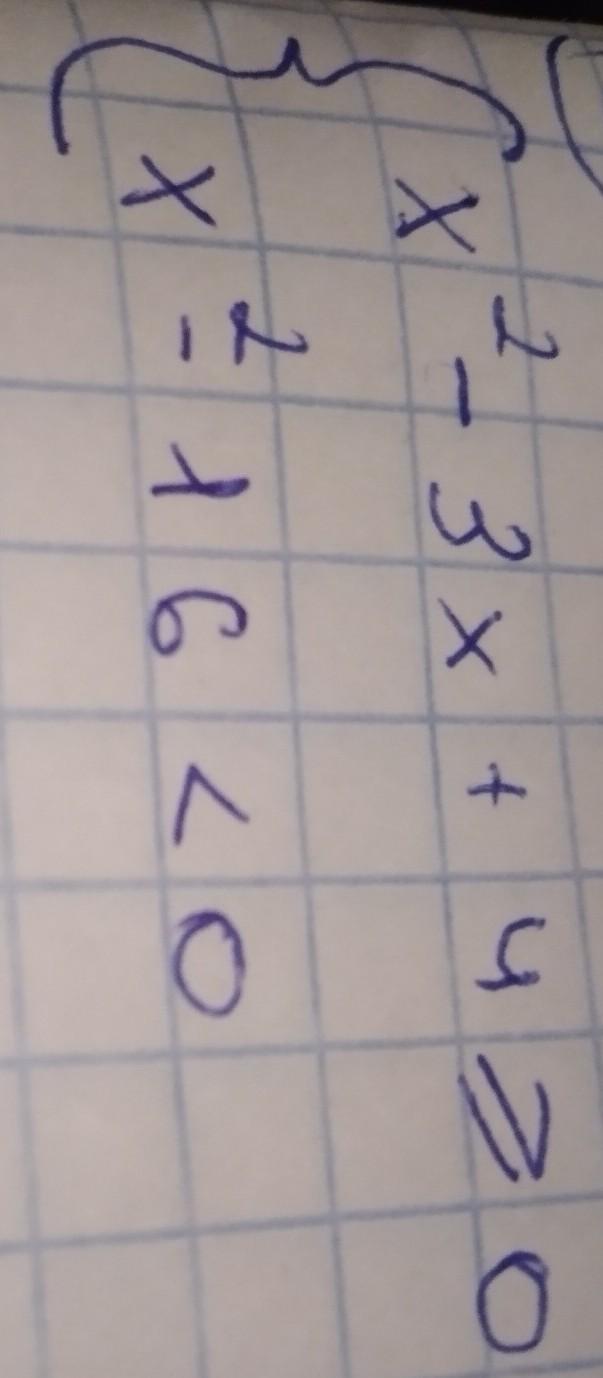 x² - 3x + 4 ⩾ 0
x² - 16 < 0